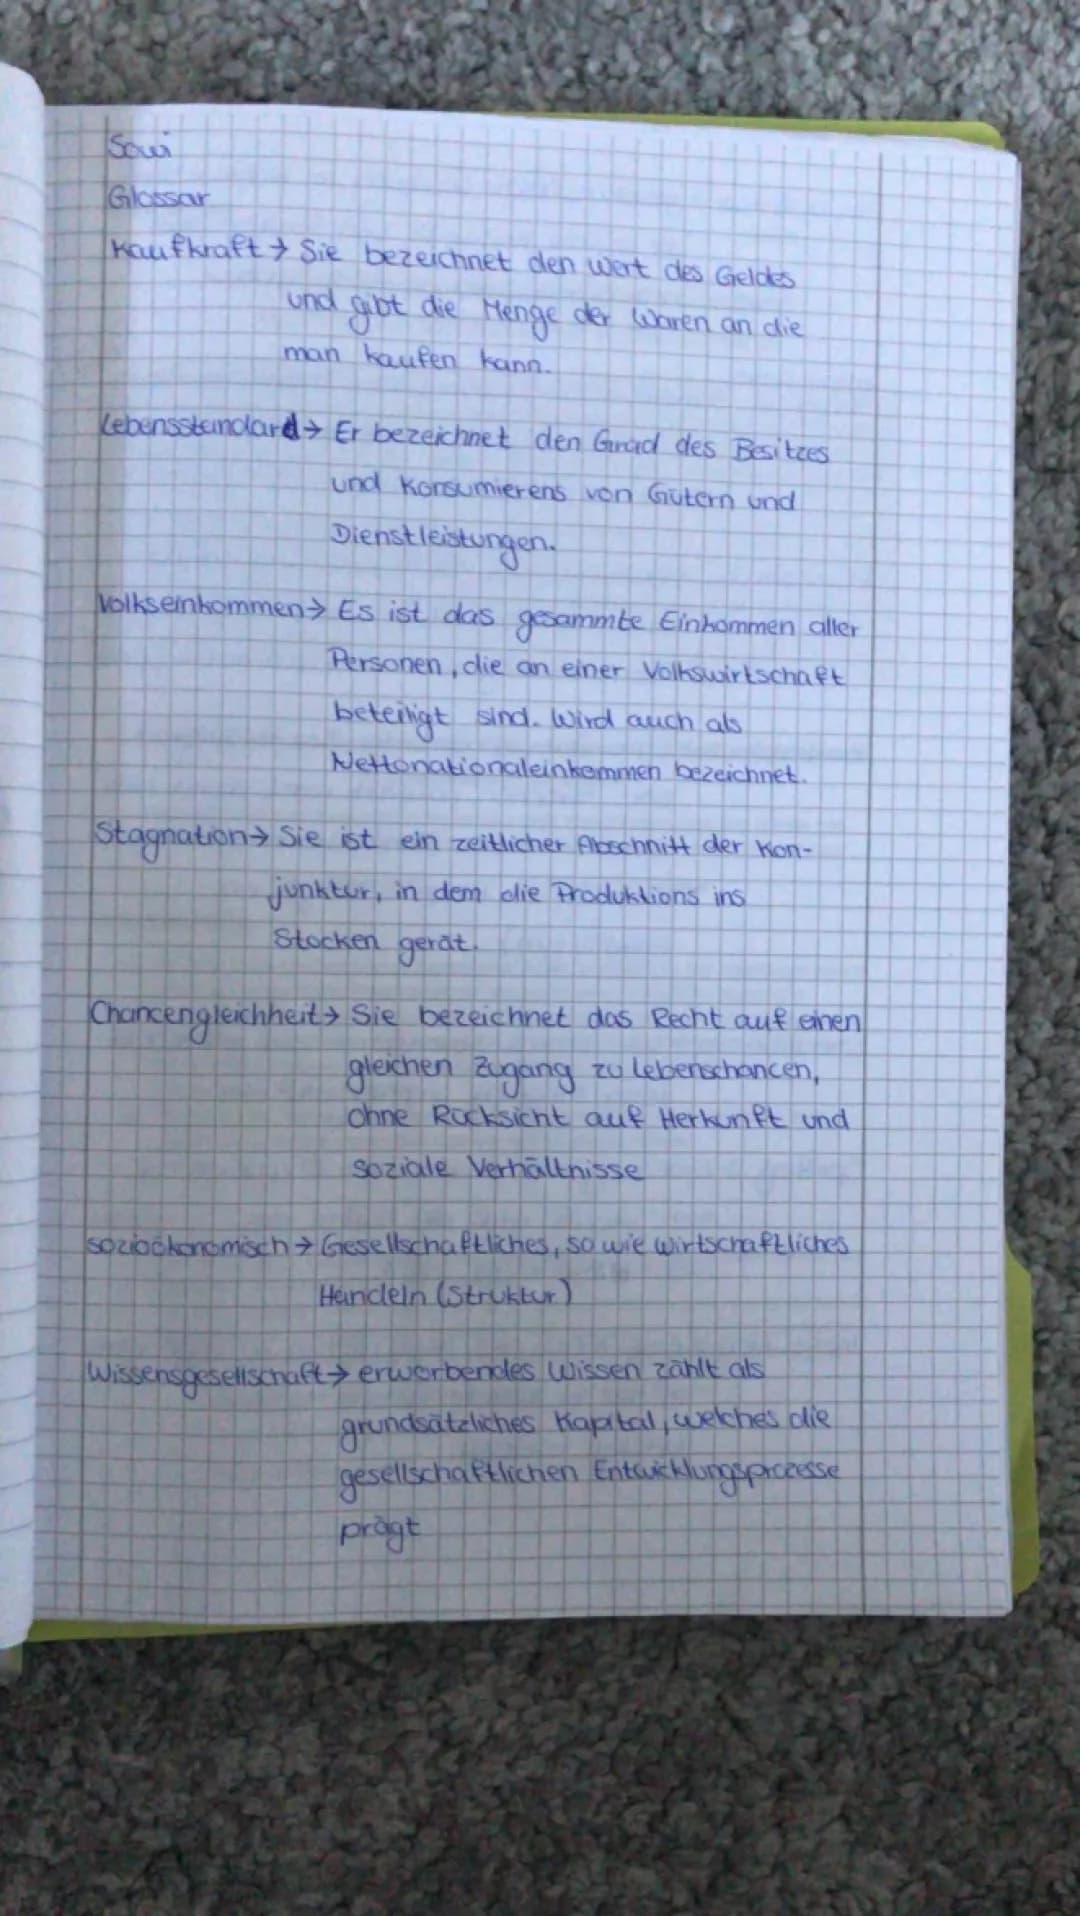 Sowi
Glossar
Kaufkraft → Sie bezeichnet den Wert des Geldes
und gibt die Menge der Waren an, die
man kaufen kann.
Lebensstandard → Er bezeichnet den Grad des Besitzes
und Konsumierens von Gütern und
Dienstleistungen.
Volkseinkommen → Es ist das gesammte Einkommen aller
Personen, die an einer Volkswirtschaft
beteiligt sind. Wird auch als
Nettonationaleinkommen bezeichnet.
Stagnation → Sie ist ein zeitlicher Abschnitt der Kon-
junktur, in dem die Produktions ins
Stocken gerät.
Chancengleichheit → Sie bezeichnet das Recht auf einen
gleichen Zugang zu Lebenschancen,
ohne Rücksicht auf Herkunft und
soziale Verhältnisse
sozioökonomisch → Gesellschaftliches, so wie wirtschaftliches
Handeln (Struktur)
Wissensgesellschaft → erworbendes Wissen zählt als
grundsätzliches Kapital, welches die
gesellschaftlichen Entwicklungsprozesse
prägt